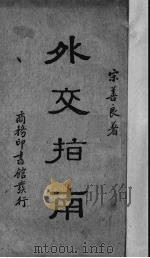 宗善良著
外交指南
商務印書館發行